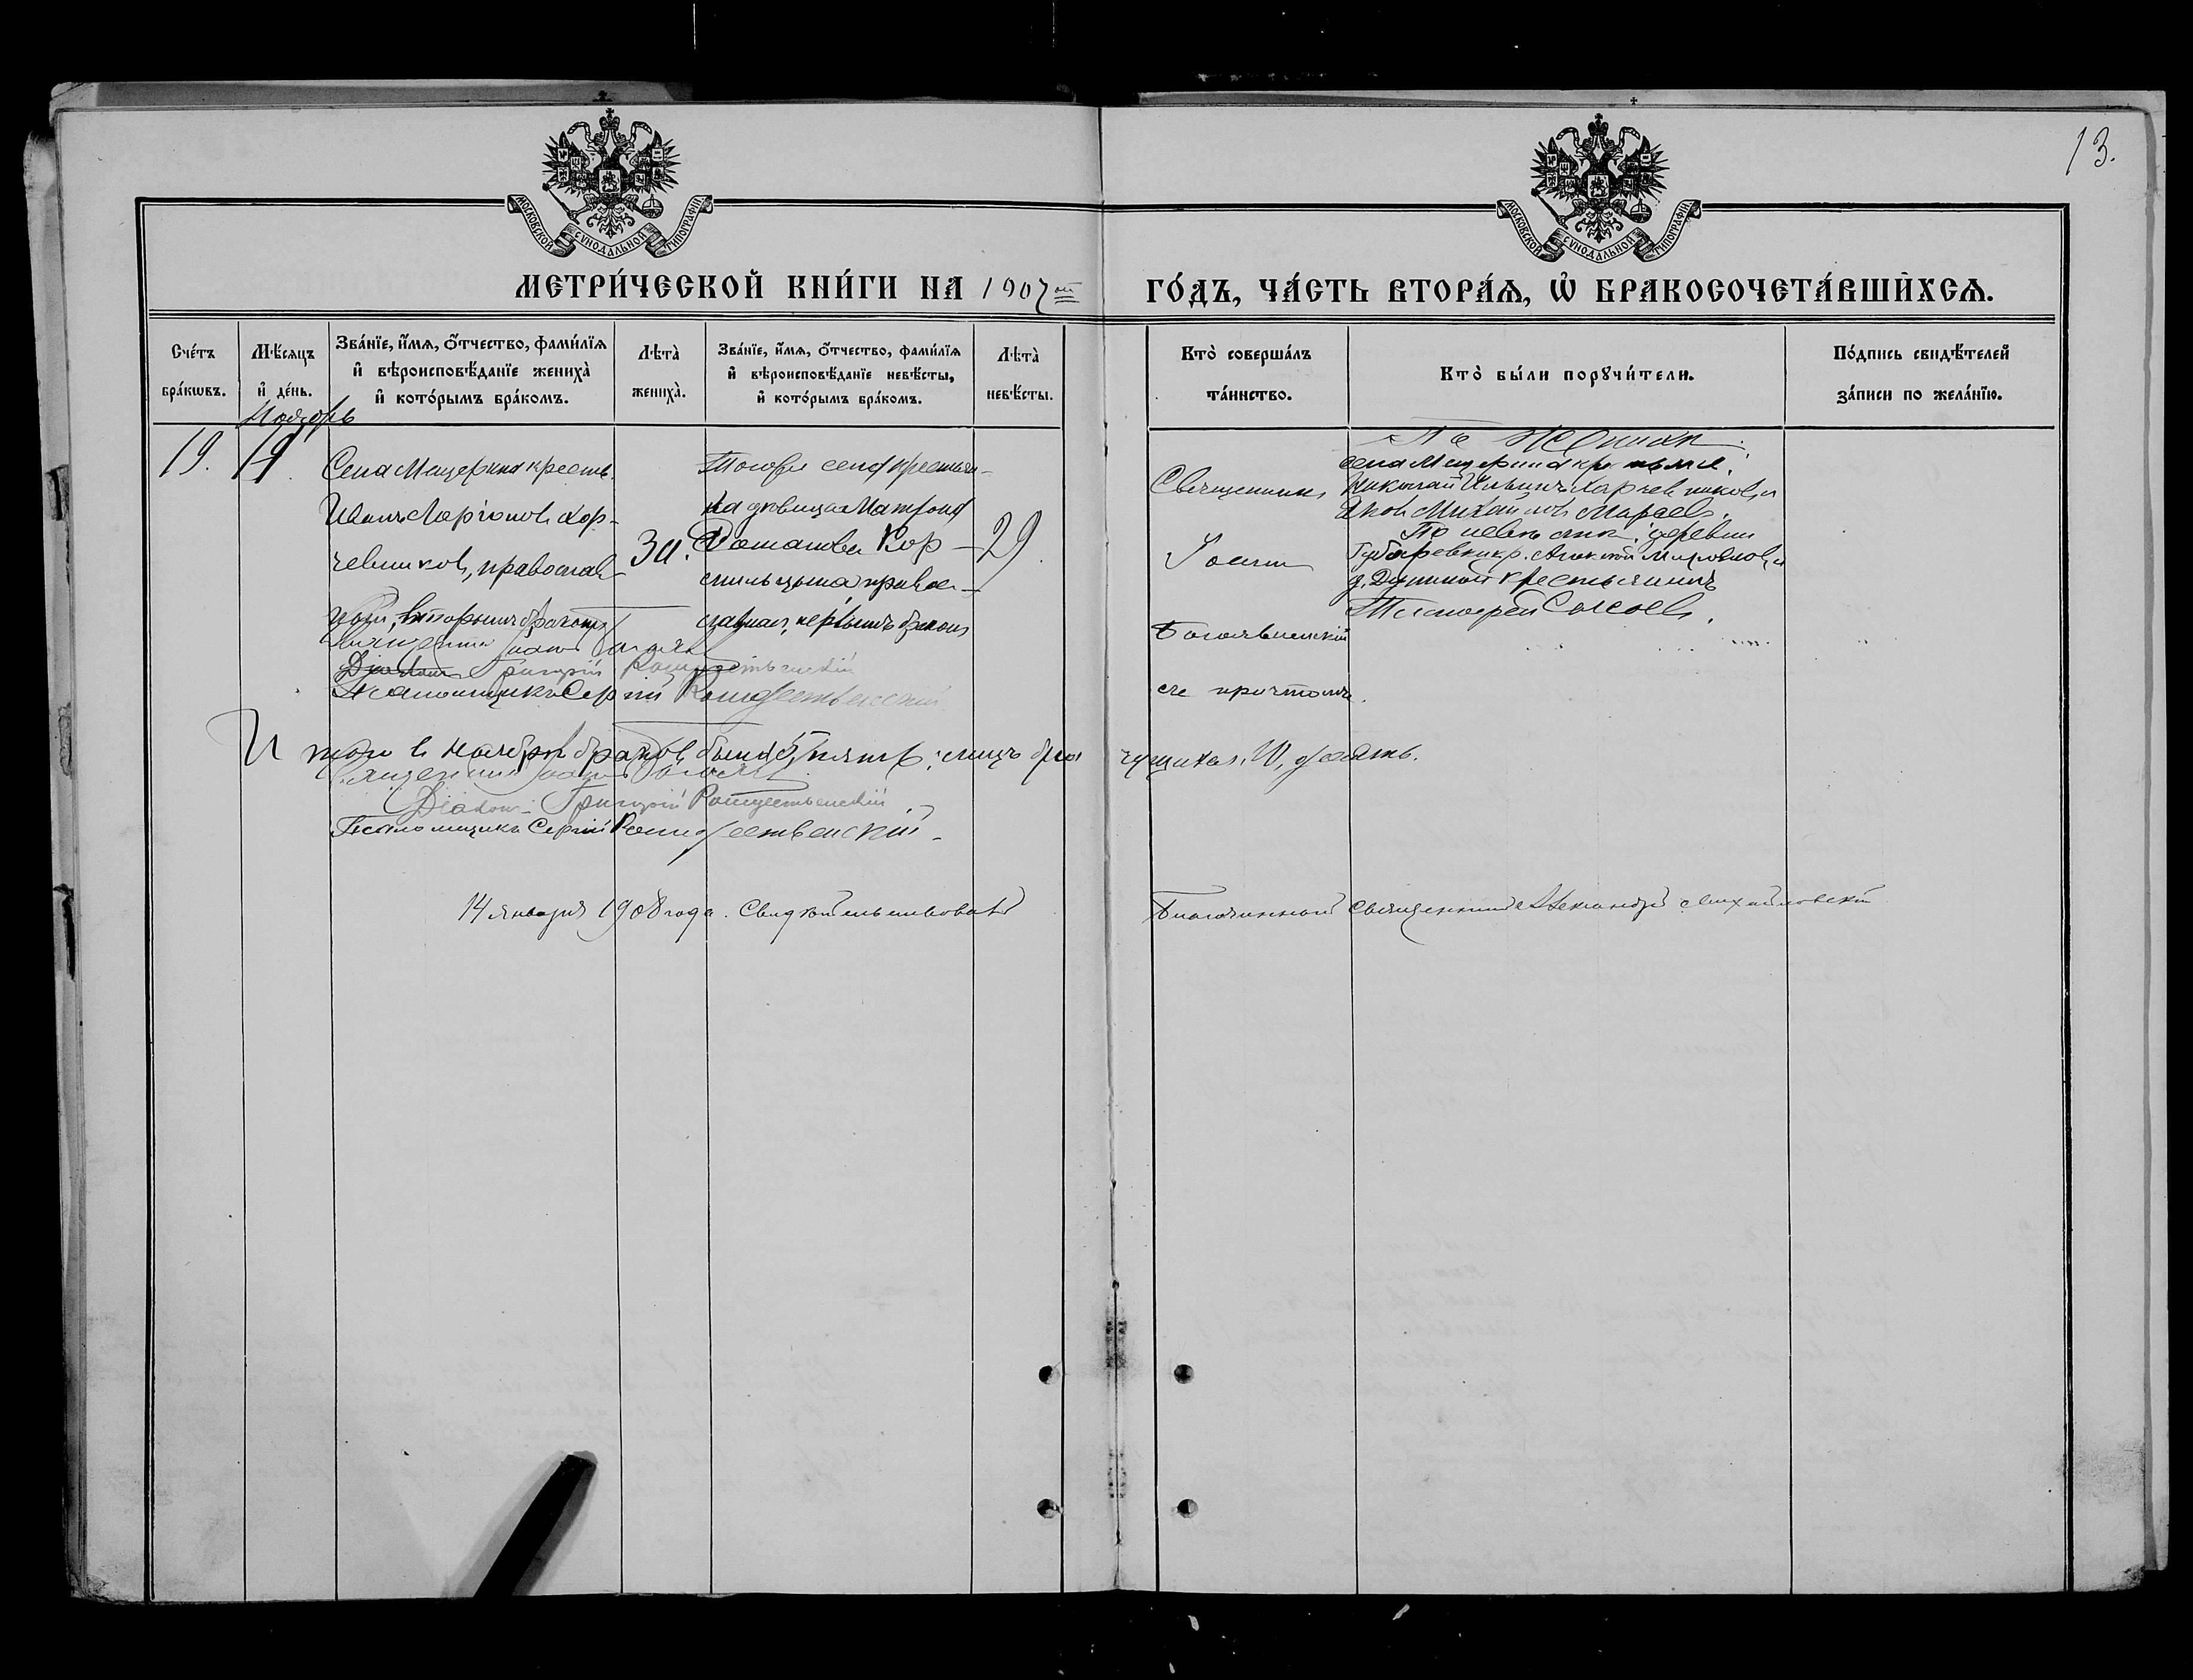 13.
МОСКОВСКОЙ СѴНОДАЛЬНОЙ ТИПОГРАФІИ
МОСКОВСКОЙ СѴНОДАЛЬНОЙ ТИПОГРАФІИ
МЕТРИ́ЧЕСКОЙ КНИ́ГИ НА 1907 ой ГО́ДЪ, ЧА́СТЬ ВТОРА́Я, Ѿ БРАКОСОЧЕТА́ВШИХСЯ.
Сче́тъ бра́кѡвъ.
Мѣ́сяцъ и҆ де́нь.
Зва́нїе, и҆́мя, о҆́тчество, фами́лїя и҆ вѣроисповѣ́данїе жениха̀ и҆ кото́рымъ бра́комъ.
Лѣта̀ жениха̀.
Зва́нїе, и҆́мя, о҆́тчество, фами́лїя и҆ вѣроисповѣ́данїе невѣ́сты, и҆ кото́рымъ бра́комъ.
Лѣта̀ невѣ́сты.
Кто̀ соверша́лъ та́инство.
Кто̀ бы́ли порꙋчи́тели.
По́дпись свидѣ́телей за́писи по жела́нїю.
Ноябрь
19.
Села Мещерина крестья.
Иванъ Ларіоновъ Хар-
чевниковъ, православ-
ный, вторымъ бракомъ
Тогоже села крестьян-
ка дѣвица Матрона
Романова Кор-
мильцына, правос-
лавная, первымъ бракомъ
29.
Священникъ
Іоаннъ
Богоявленскій
съ причтомъ.
По женихѣ
села Мещерина кр.
Николай Ильинъ Харчевниковъ и
Яковъ Михайловъ
По невѣстѣ: деревни
кр. Алексѣй и
крестьянинъ
Тимофей
Священникъ Іоаннъ
Діаконъ Григорій Рождественскій
Псаломщикъ Сергій Рождественскій
Итого въ Ноябрѣ браковъ было 5, пять, лицъ бра чущихся, 10, десять.
Священникъ Іоаннъ
Діаконъ Григорій Рождественскій
Псаломщикъ Сергій Рождественскій
14 января 1908 года. Свидѣтельствовалъ Благочинный священникъ Александръ Михайловскій